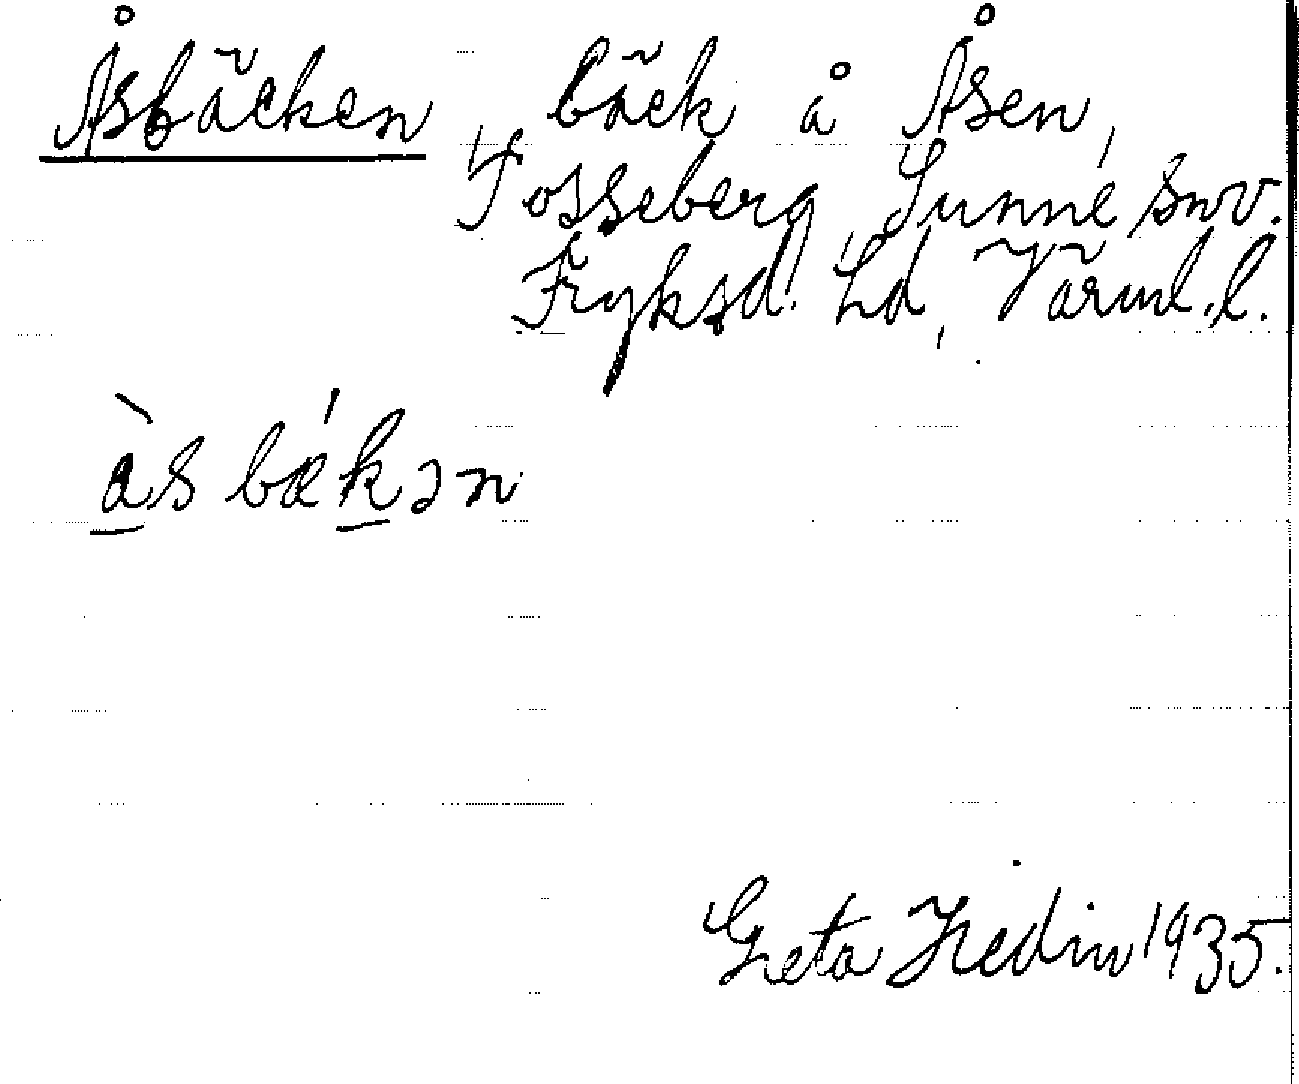 Åsbäcken, bäck å Åsen,
Tosseberg, Sunne snv.
Fryksd. hd, Värml. l.
à̲sbæ̀ḱ̲ən
Greta Hedin 1935.